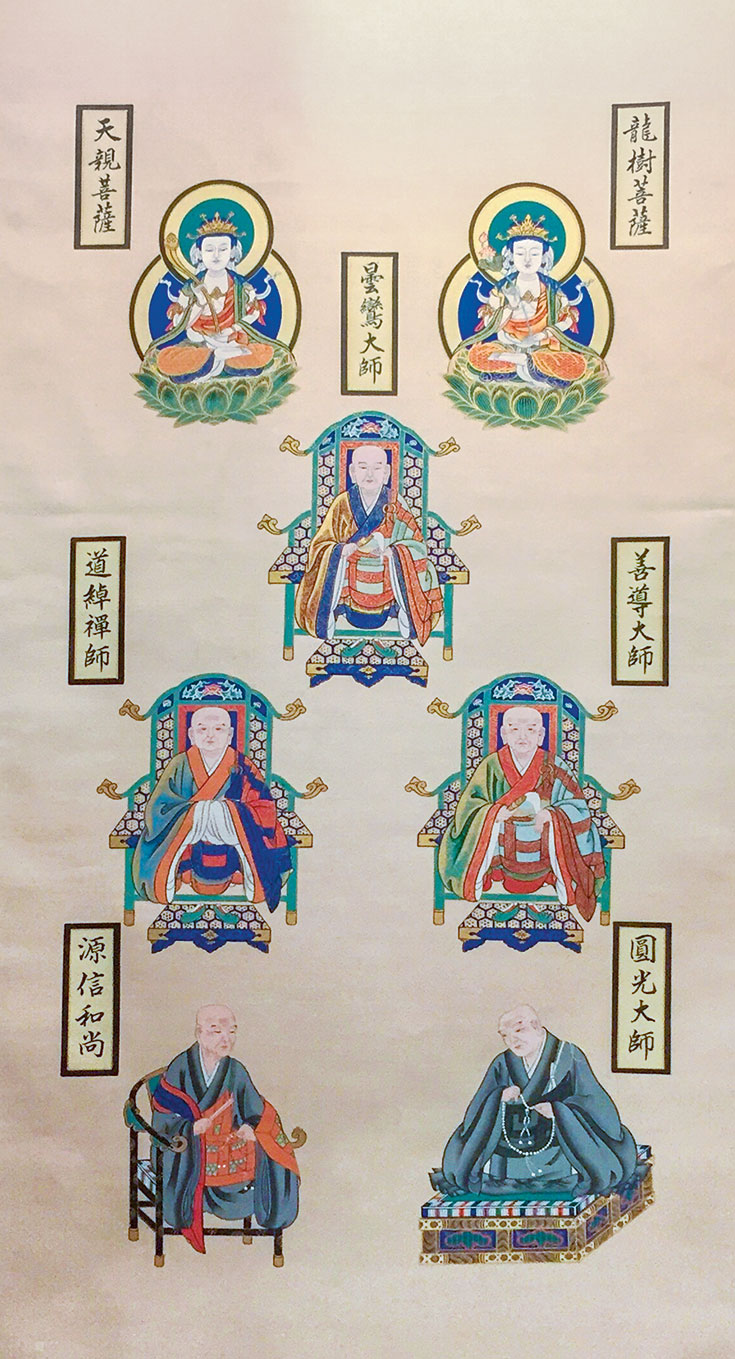 龍樹菩薩
天親菩薩
曇鸞大師
道綽禪師
善導大師
源信和尚
圓光大師